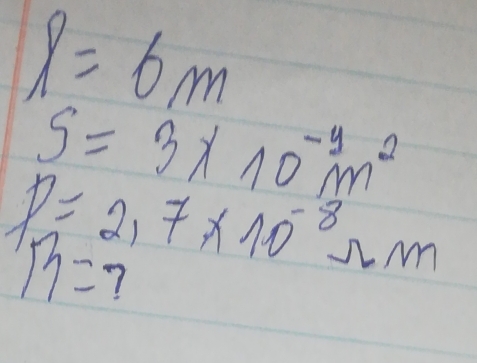 l = 6 m
S = 3 × 10⁻⁴ m²
ρ = 2,7 × 10⁻⁸ Ωm
R = ?